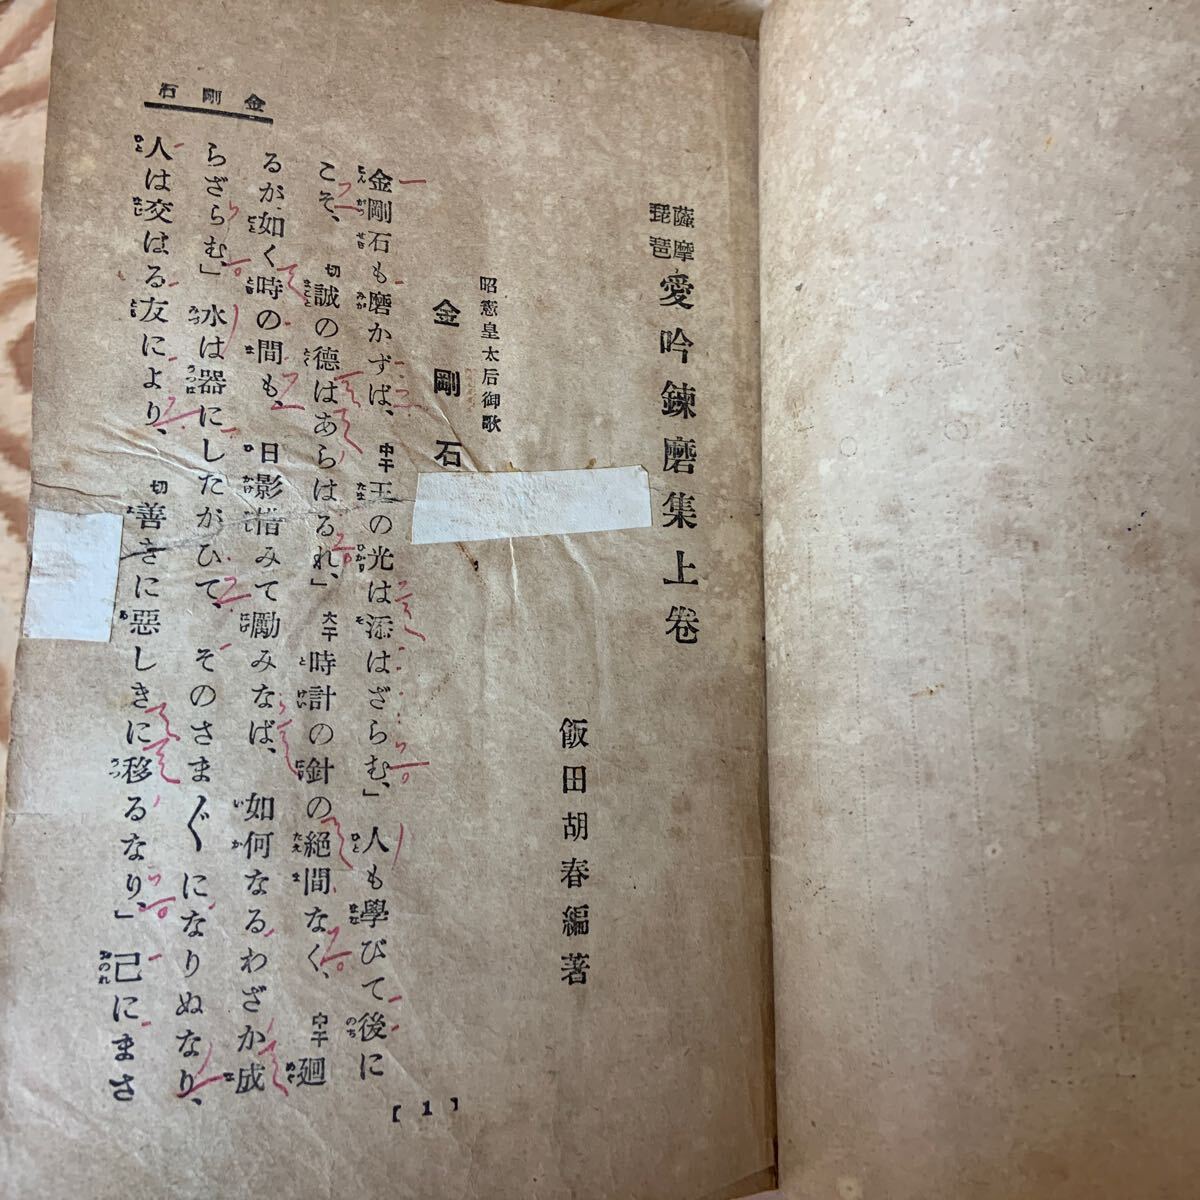 薩摩琵琶 愛吟錬磨集上卷
飯田胡春編著
昭憲皇太后御歌
金剛石
金剛石も磨かずば、 中干 玉の光は添はざらむ、」 人も學びて後に
こそ、 切 誠の德はあらはるれ、」 大干 時計の針の絕間なく、 中干 廻
るが如く時の間も、 日影惜みて勵みなば、 如何なるわざか成
らざらむ、」 水は器にしたがひて、 そのさま〴〵になりぬなり、
人は交はる友により、 切 善きに惡しきに移るなり、」 己にまさ
金剛石
【1】